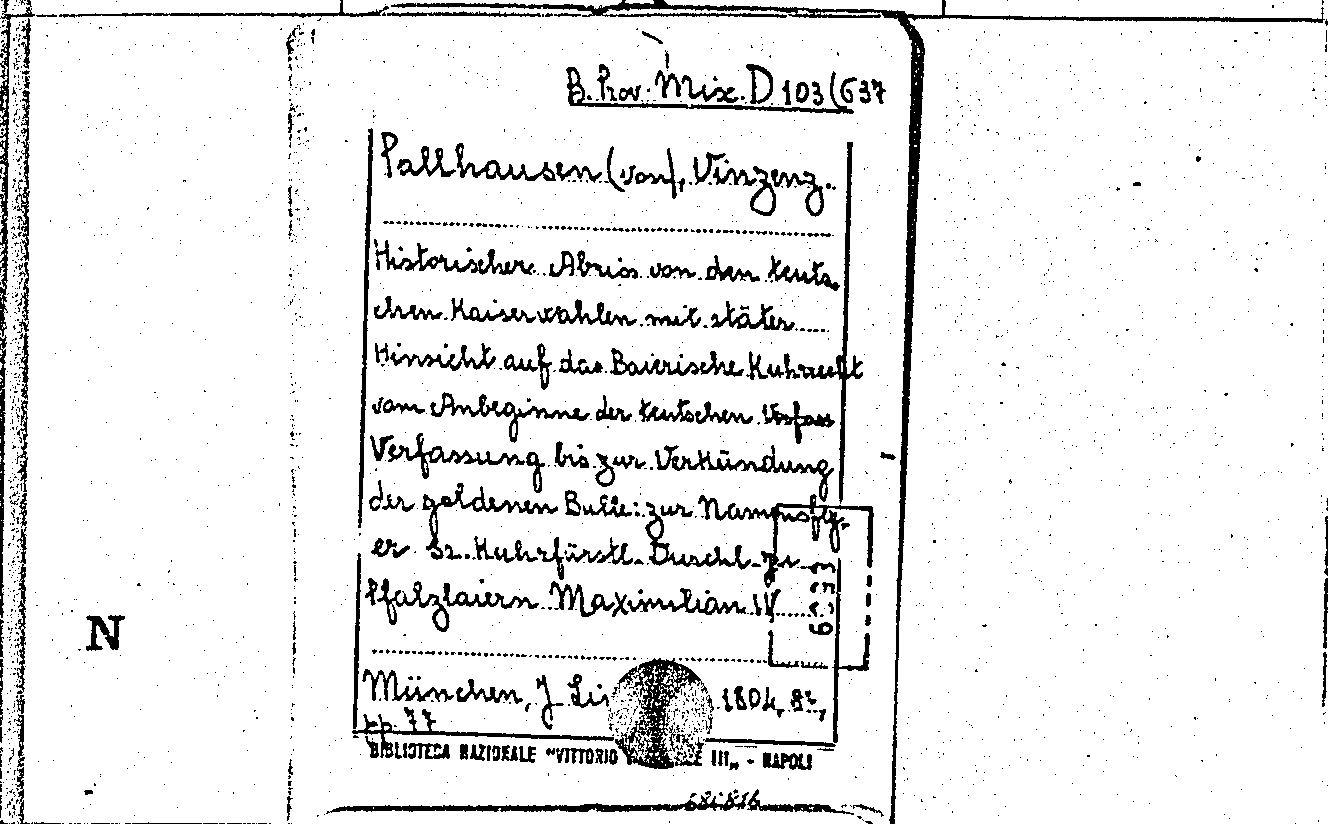 B. Prov. Misc. D 103(637
Pallhausen (von), Vinzenz.
Historischer Abriss von den teuts-
chen Kaiserwahlen mit stäter
Hinsicht auf das Baierische Kuhrrecht
vom Anbeginne der teutschen Verfass
Verfassung bis zur Verkündung
der goldenen Bulle: zur Namensfey-
er Sr. Kuhrfürstl. Durchl. zu
Pfalzbaiern Maximilian IV
6553
München, J. Li 1804, 8º,
pp. 77
BIBLIOTECA NAZIONALE "VITTORIO III„ - NAPOLI
N